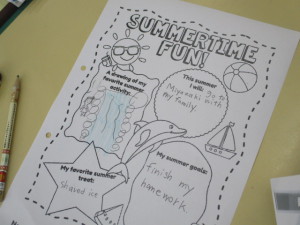 SUMMERTIME
FUN!
A drawing of my
favorite summer
activity:
This summer
I will: go to
Miyazaki with
my family
My favorite summer
treat:
shaved ice
My summer goals:
finish my
homework